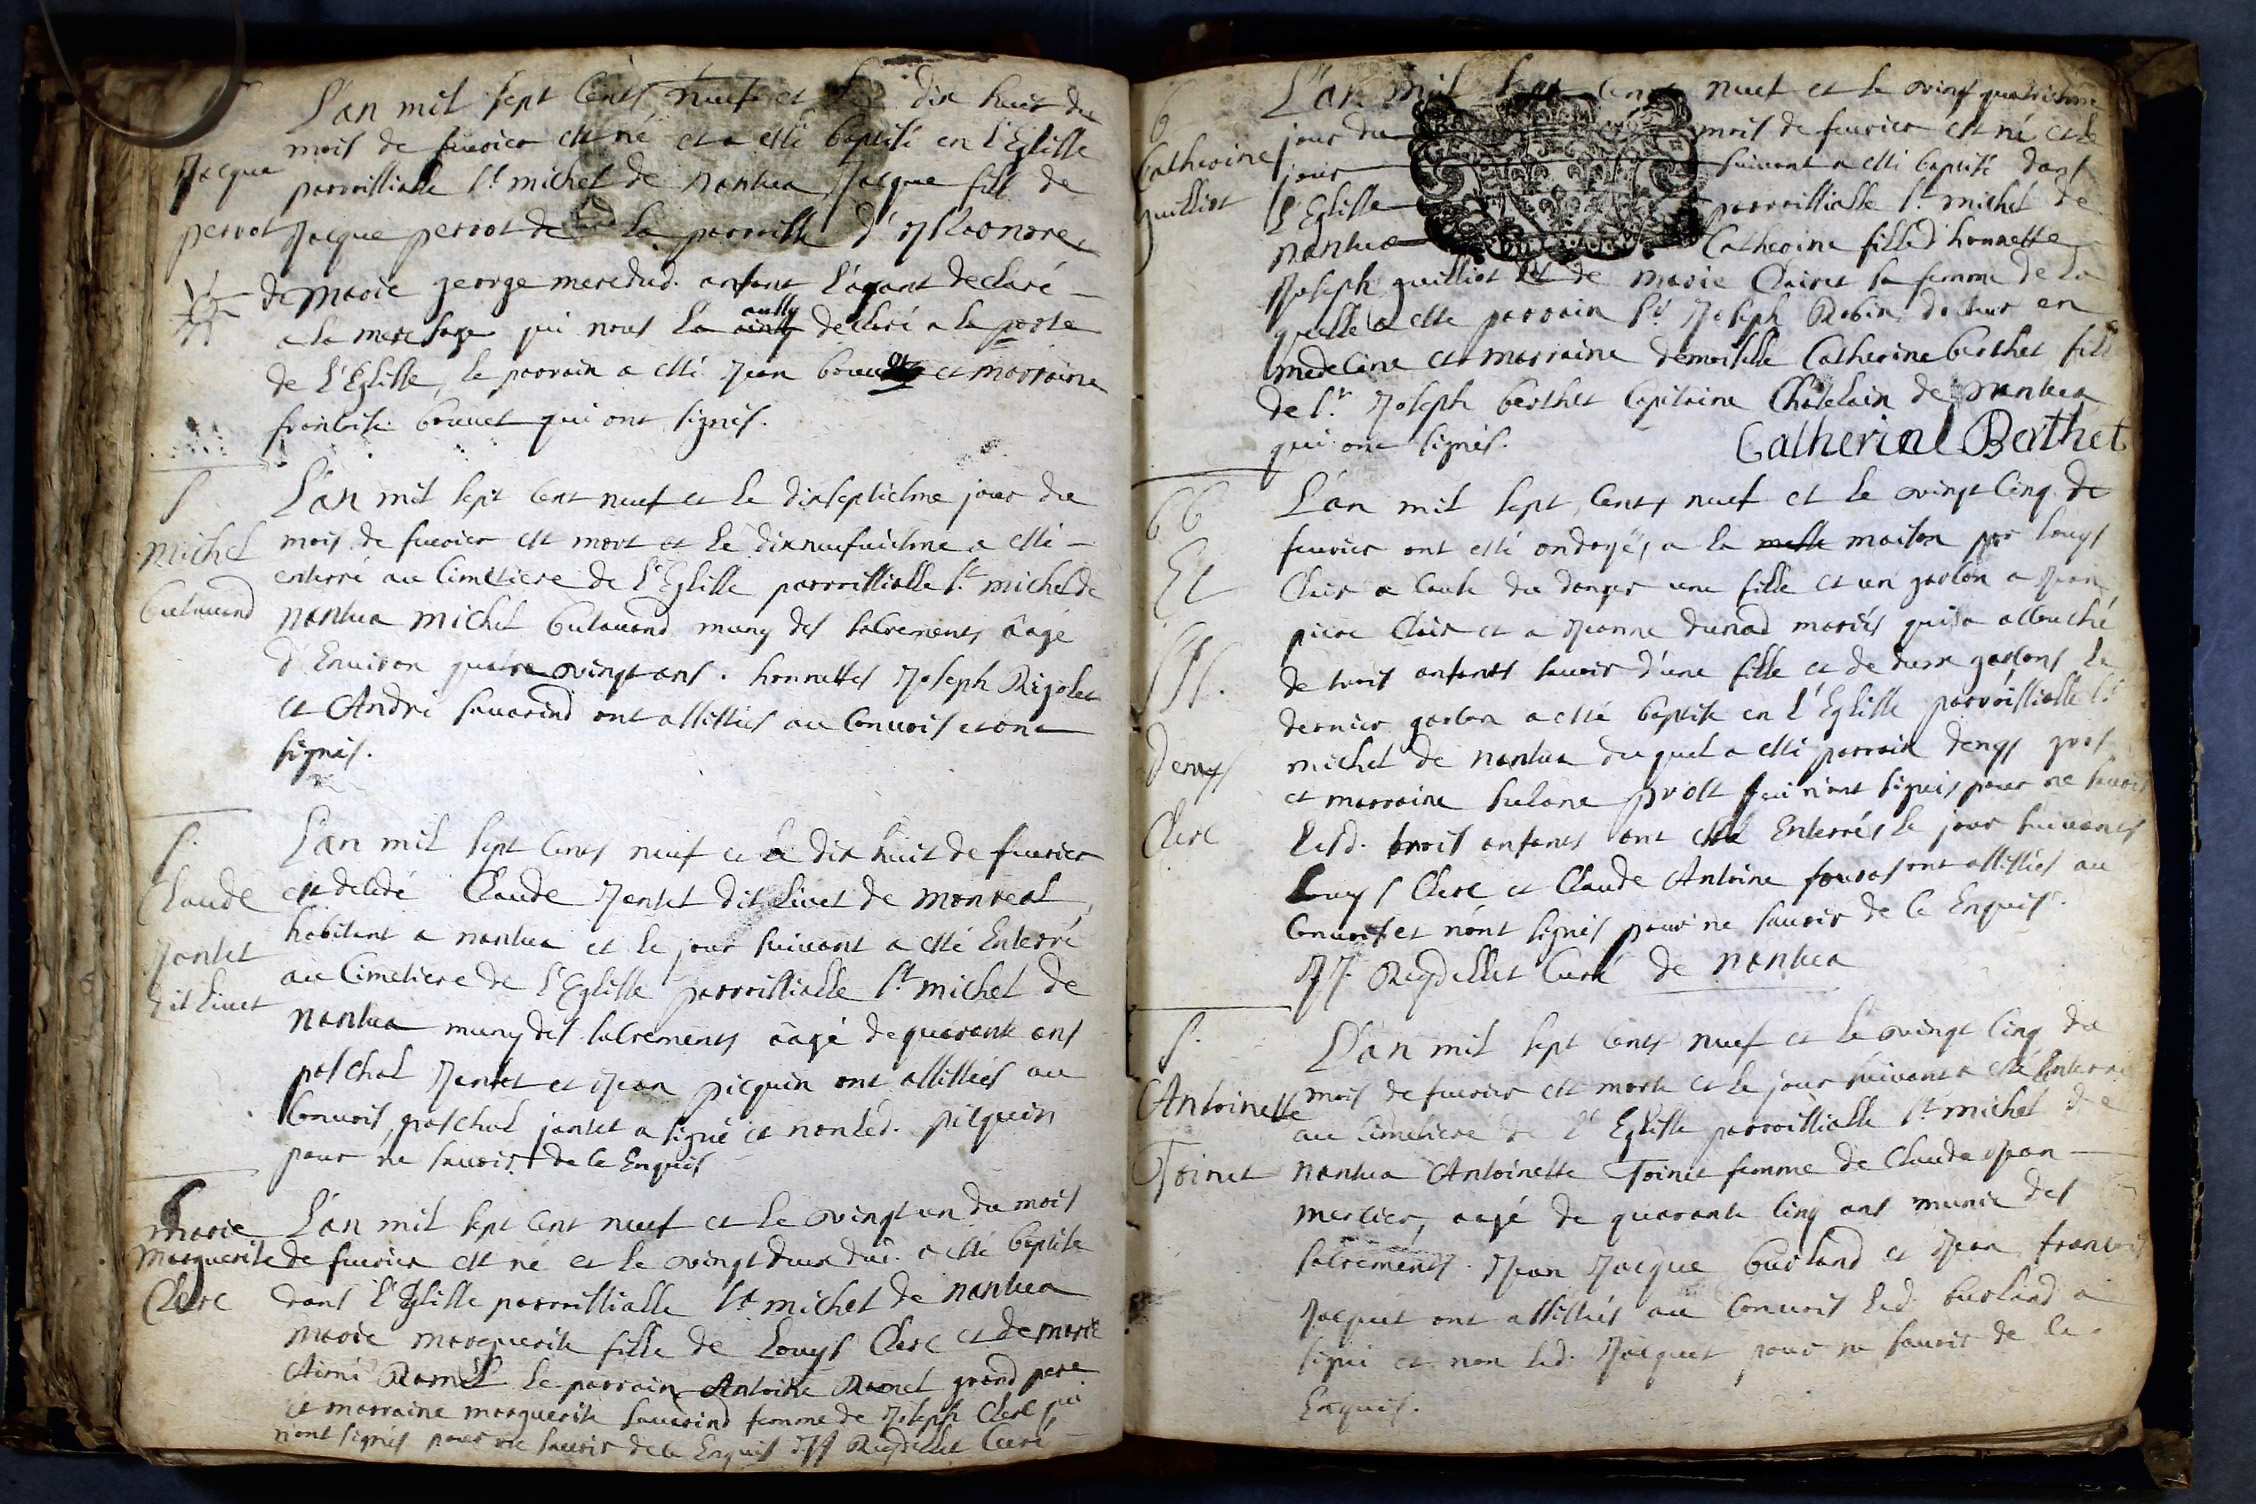 Jacque
perrot
L'an mil sept cents neuf et le dix huit du
mois de feuvrier est né et a esté baptisé en l'Eglisse
parroissialle st michel de nantua Jacque fils de
Jacque perrot de la parroisse d'
de marie george meredud. enfant l'ayant declaré
a la mere sage qui nous l'a aussy declaré a la porte
de l'Eglisse, le parrain a esté Jean bouuet et marraine
francoise bouuet qui ont signés.
S
michel
L'an mil sept cent neuf et le dixseptiesme jour du
mois de feuvrier est mort et le dixneufuiesme a esté
enterré au Cimetiere de l'Eglisse parroissialle st. michel de
nantua michel muny des sacrements aagé
d'Enuiron quatre vingt ans. honnettes Joseph Rigolet
et André sauarind ont assistés au Conuois et ont
signés.
S.
Claude
Jantet
dit liuet
L'an mil sept cents neuf et le dix huit de feuvrier
est decedé Claude Jentet dit liuet de monreal,
habitant a nantua et le jour suiuant a esté Enterré
au Cimetiere de l'Eglisse parroissialle st michel de
nantua muny des sacrements aagé de quarante ans
paschal Jentet et Jean picquin ont assistés au
Conuois, paschal jantet a signé et non led. picquin
pour ne sauoir de ce Enquis
b
marie
marguerite
Clerc
L'an mil sept cent neuf et le vingt un du mois
de feuvrier est né et le vingt deux dud. a esté baptisée
dans l'Eglisse parroissialle st michel de nantua
marie marguerite fille de Louys Clerc et de marie
Aimé Ramel le parrain Antoine Ramel grand pere
et marraine marguerite sauarind femme de Joseph Clerc qui
n'ont signés pour ne sauoir de ce Enquis JJ Reydellet Curé
b
Catherine
guilliot
L'an mil sept cents neuf et le vingt quatriesme
jour du mois de feuvrier est né et le
jour suiuant a esté baptisé dans
l'Eglisse parroissialle st. michel de
nantua Catherine fille d'honnette
Joseph guilliot et de marie Clairet sa femme de la
quelle a esté parrain sr. Joseph Robin docteur en
medecine et marraine demoiselle Catherine berthet fille
de sr. Joseph berthet Capitaine Chatelain de nantua
qui ont signés. Catherine Berthet
bb
Et
SSS.
denys
Clerc
L'an mil sept cents neuf et le vingt cinq de
feuvrier ont esté ondoyés a la maison par louys
Clerc a cause du danger une fille et un garson a Jean
piere Clerc et a Jeanne dunad mariés qui a accouché
de trois enfants sauoir d'une fille et de deux garsons le
dernier garson a esté baptisé en l'Eglisse parroissialle st
michel de nantua duquel a esté parrain denys gros
et marraine susane prost qui n'ont signés pour ne sauoir
lesd. trois enfants ont esté Enterrés le jour suiuants
Louys Clerc et Claude Antoine fouras ont assistés au
Conuois et n'ont signés pour ne sauoir de ce Enquis.
JJ. Reydellet Curé de nantua
S.
Antoinette
Toinet
L'an mil sept cents neuf et le vingt cinq du
mois de feuvrier est morte et le jour suiuant a esté Enterré
au Cimetiere de l'Eglisse parroissialle st michel de
nantua Antoinette Toinet femme de Claude Jean
mercier, aagé de quarante cinq ans munie des
sacrements. Jean Jacque burland et Jean francois
Jacquet ont assistés au Conuois led. burland a
signé et non led. Jacquet pour ne sauoir de ce
Enquis.